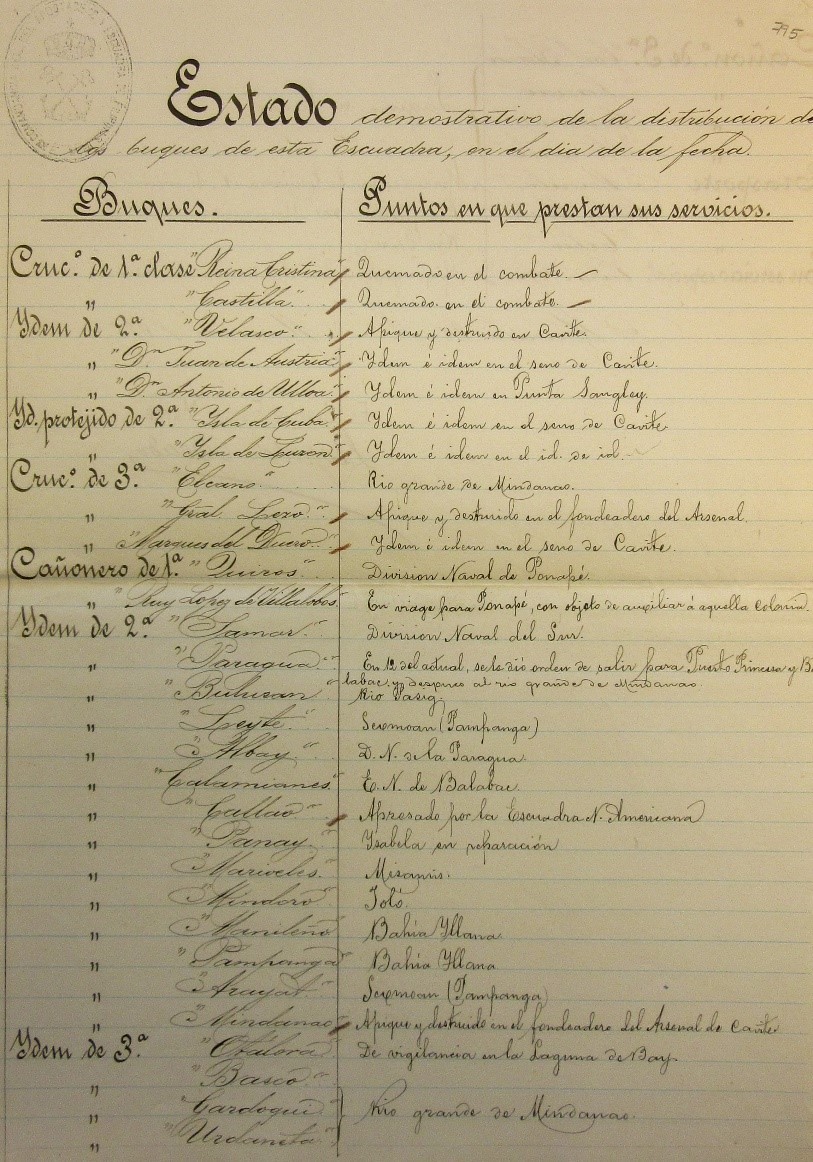 795
Estado demostrativo de la distribución de
los buques de esta Escuadra, en el dia de la fecha.
Buques. Puntos en que prestan sus servicios.
Cruc.º de 1.ª clase "Reina Cristina" Quemado en el combate.
" "Castilla" Quemado en el combate.
Ydem de 2.ª "Velasco" Apique y destruido en Cavite.
" "D.n Juan de Austria" Ydem é idem en el seno de Cavite.
" "D.n Antonio de Ulloa" Ydem é idem en Punta Sangley.
Yd. protejido de 2.ª "Ysla de Cuba" Ydem é idem en el seno de Cavite.
" "Ysla de Luzon" Ydem é idem en el id. de id.
Cruc.º de 3.ª "Elcano" Rio grande de Mindanao.
" "Gral. Lezo" Apique y destruido en el fondeadero del Arsenal.
" "Marques del Duero" Ydem é idem en el seno de Cavite.
Cañonero de 1.ª "Quiros" Division Naval de Ponapé.
" "Ruy Lopez de Villalobos" En viage para Ponapé, con objeto de auxiliar á aquella colonia.
Ydem de 2.ª "Samar" Division Naval del Sur.
" "Paragua" En 12 del actual, se le dió orden de salir para Puerto Princesa y Ba
labac y despues al rio grande de Mindanao.
" "Bulusan" Rio Pasig
" "Leyte" Sexmoan (Pampanga)
" "Albay" D. N. de la Paragua.
" "Calamianes" E. N. de Balabac.
" "Callao" Apresado por la Escuadra N. Americana
" "Panay" Ysabela en reparación
" "Mariveles" Misamis.
" "Mindoro" Joló.
" "Manileño" Bahía Yllana.
" "Pampanga" Bahía Yllana
" "Arayat" Sexmoan (Pampanga)
" "Mindanao" Apique y destruido en el fondeadero del Arsenal de Cavite
Ydem de 3.ª "Otálora" De vigilancia en la Laguna de Bay
" "Basco"
" "Gardoqui" Rio grande de Mindanao.
" "Urdaneta"